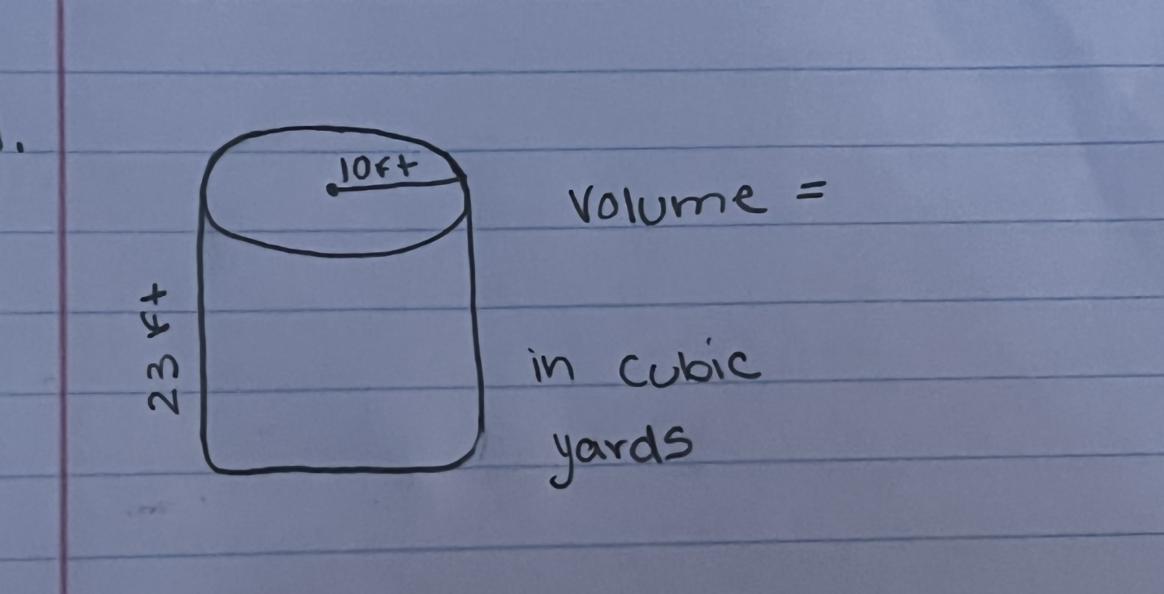 10ft
Volume =
23 ft
in cubic
yards